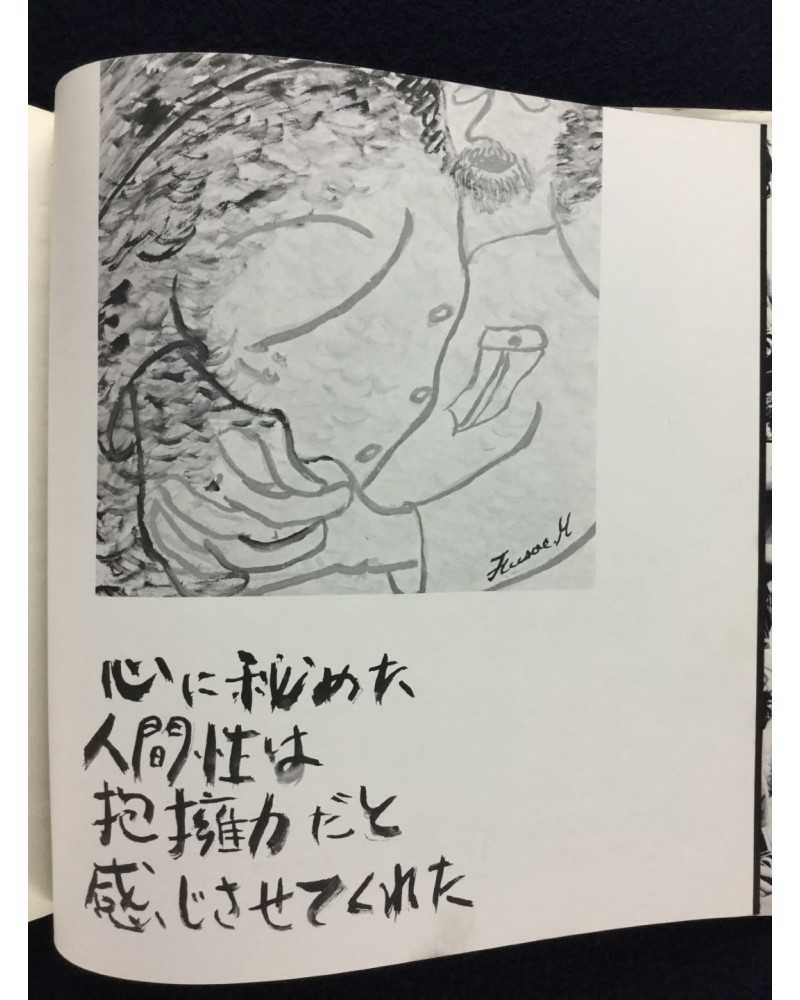 心に秘めた
人間性は
抱擁力だと
感じさせてくれた